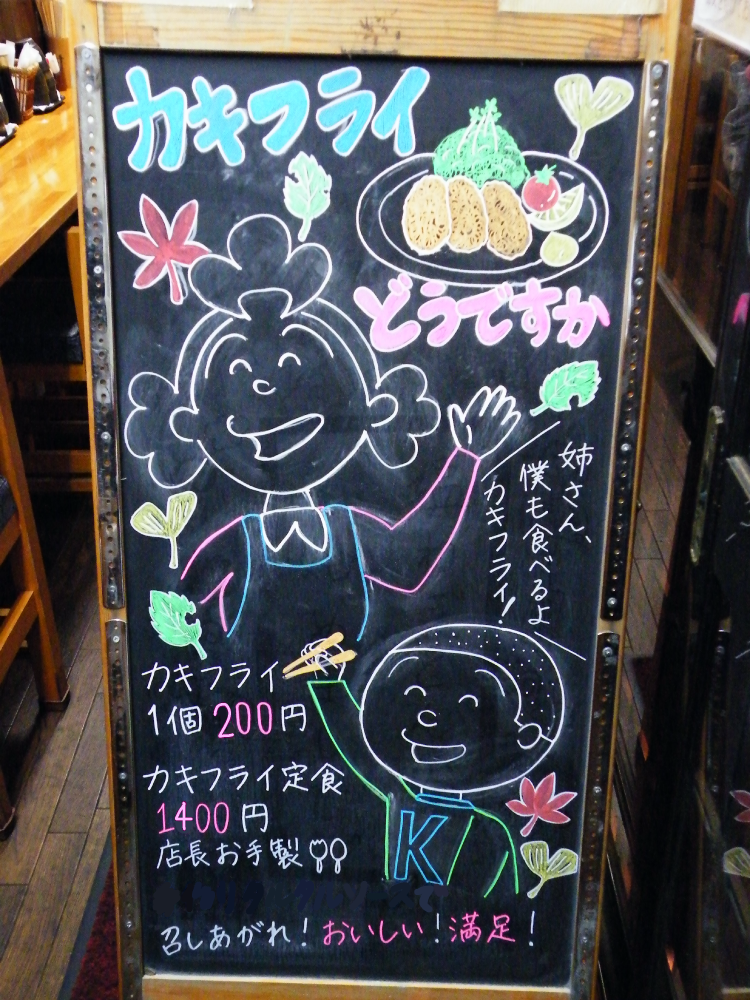 カキフライ
どうですか
姉さん、
僕も食べるよ
カキフライ!
カキフライ
1個 200円
カキフライ定食
1400円
店長お手製
K
召しあがれ!おいしい!満足!